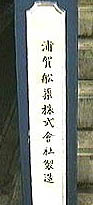 浦賀船渠株式會社製造